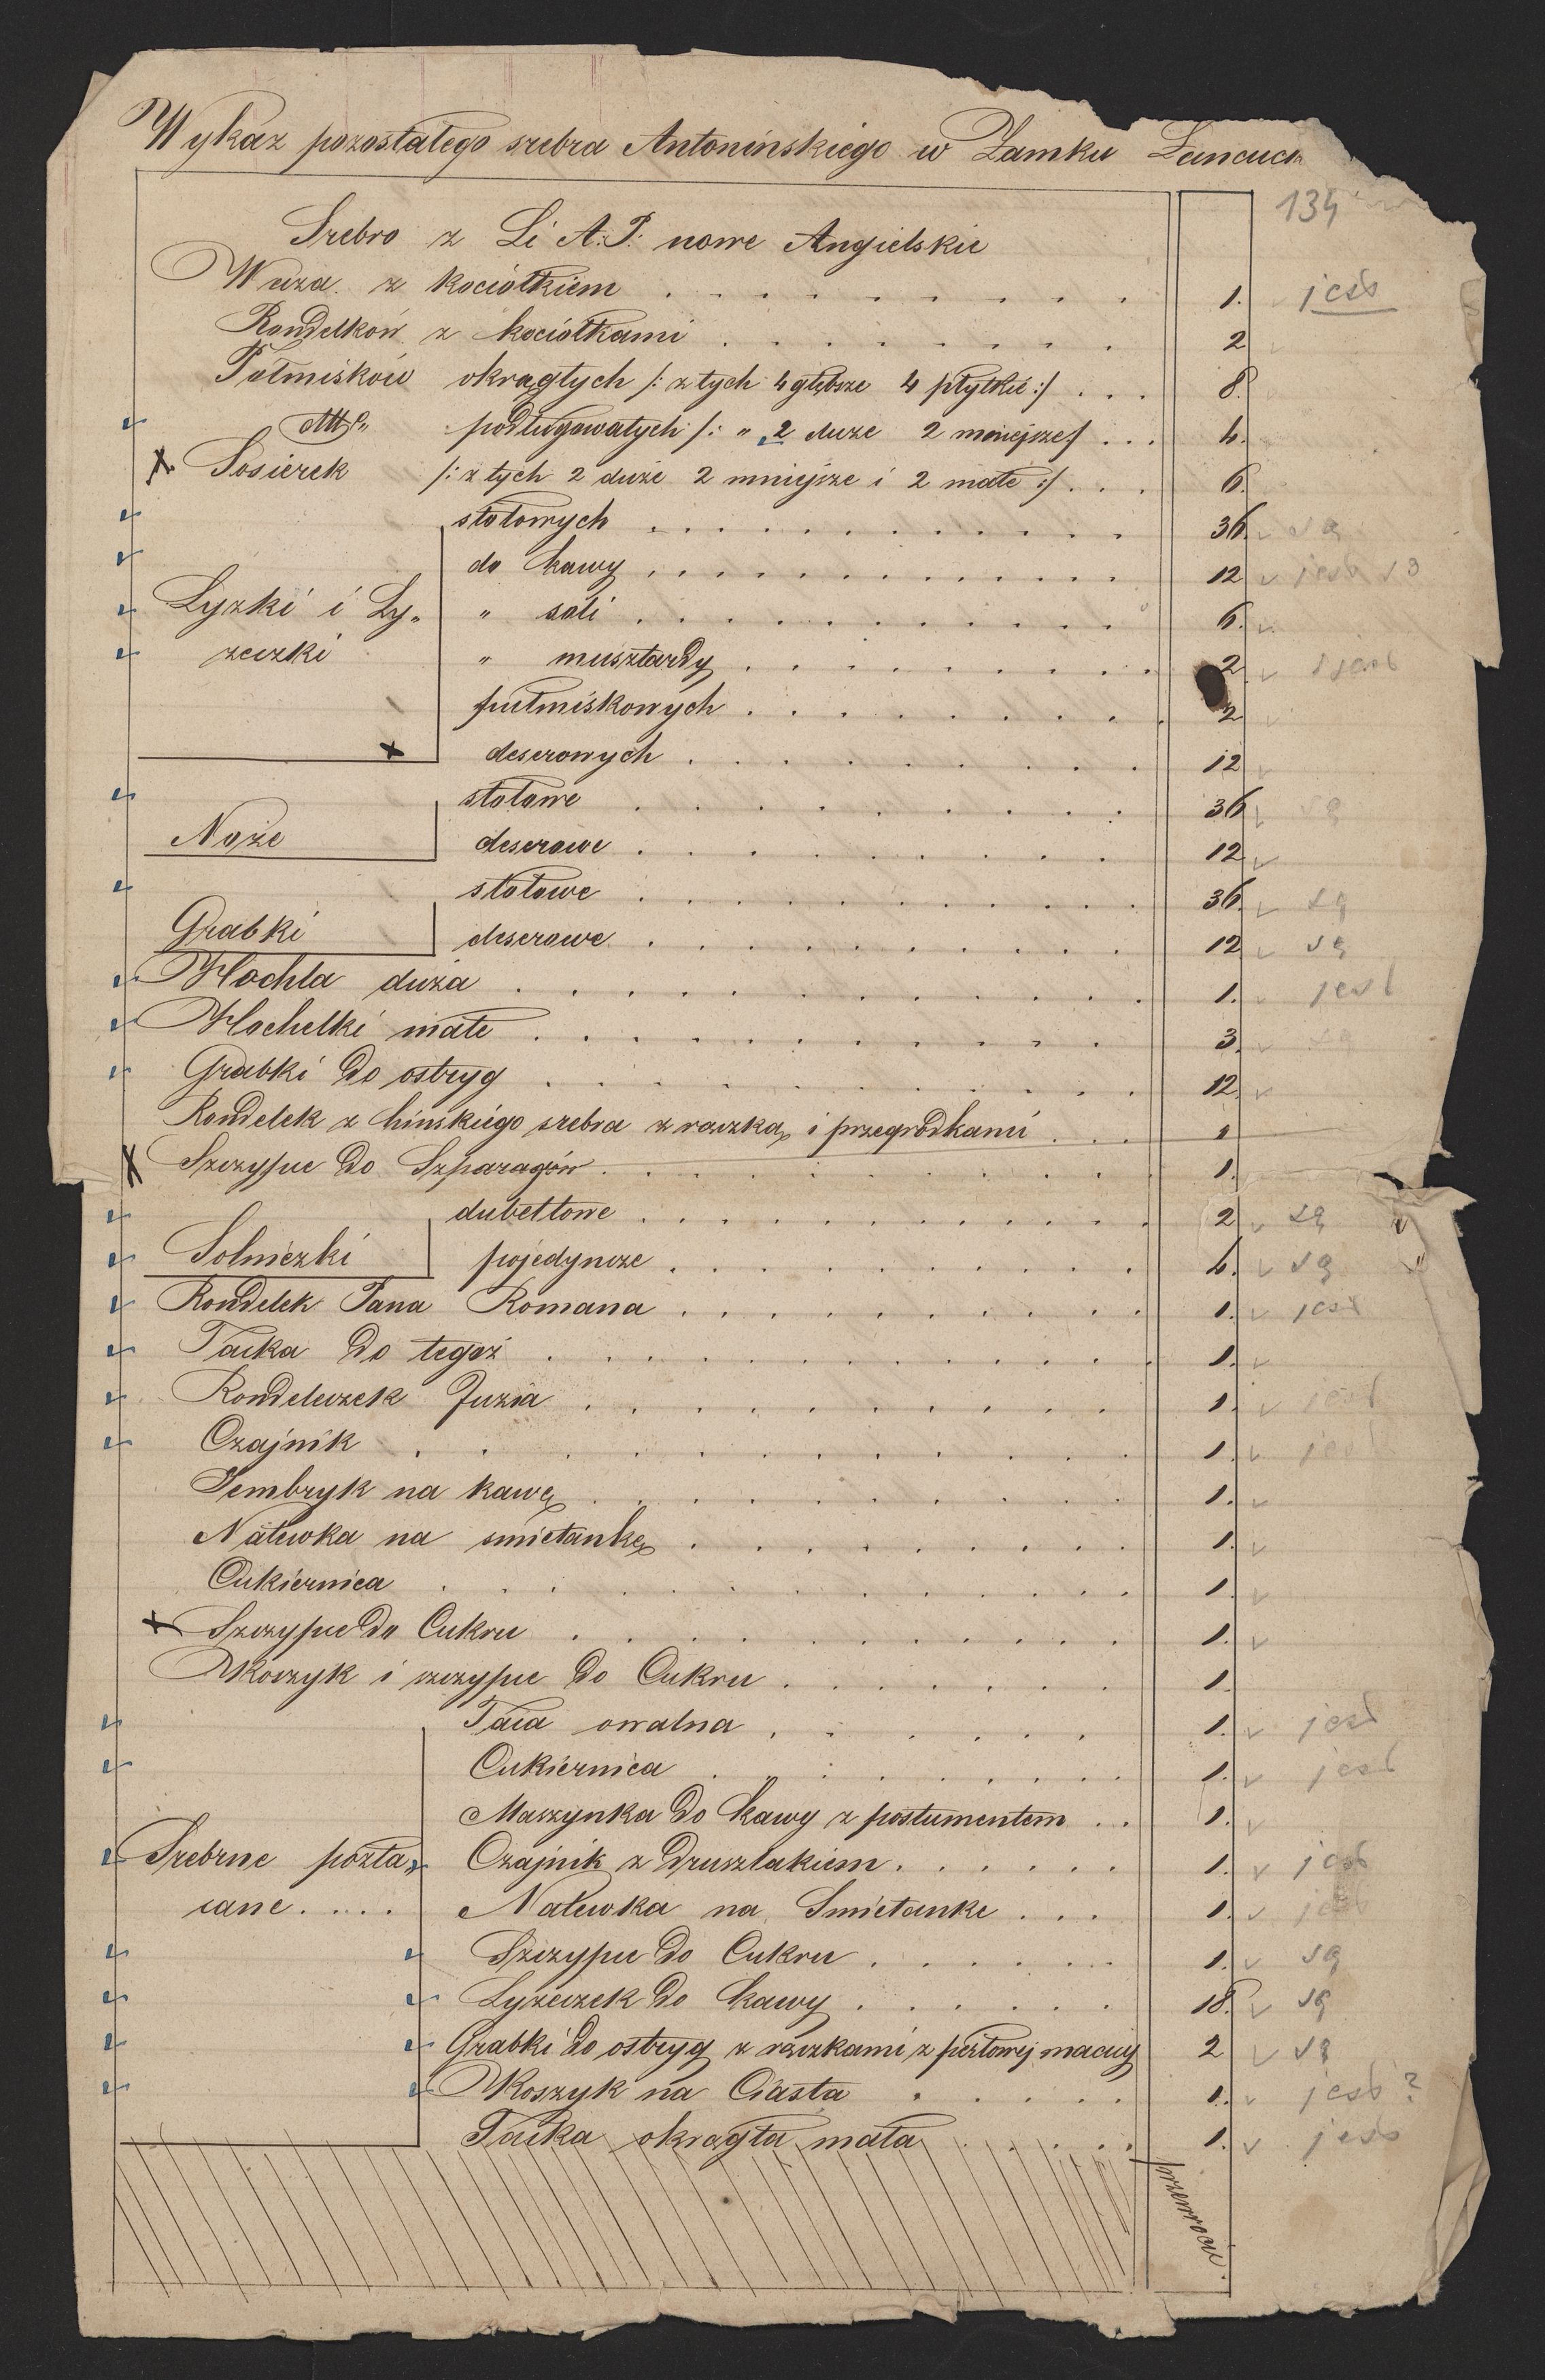 Wykaz pozostałego srebra Antonińskiego w Zamku Łańcuck
134
Srebro z Li A: P: nowe Angielskie
Waza z kociołkiem . . . . . . . . . 1. jest
Rondelków z kociołkami . . . . . . . . 2
Półmisków okrągłych /: z tych 4 głębsze 4 płytkie :/ . . . 8.
podługowatych /: " 2 duże 2 mniejsze/ . . . 4.
Sosierek /: z tych 2 duże 2 mniejsze i 2 małe :/ . . . 6.
stołowych . . . . . . . . . . 36 są
do kawy . . . . . . . . . . 12 jest 13
Łyżki i Ły„ " soli . . . . . . . . . . 6.
żeczki " musztardy . . . . . . . . . 2 1 jest
pułmiskowych . . . . . . . . . 2
deserowych . . . . . . . . . 12
stołowe . . . . . . . . . 36 są
Noże deserowe . . . . . . . . . 12
stołowe . . . . . . . . . . 36. są
Grabki deserowe . . . . . . . . . 12 są
Hochla duża . . . . . . . . . . . . 1. jest
Hochelki małe . . . . . . . . . . . 3. są
Grabki do ostryg . . . . . . . . . . . 12.
Rondelek z hińskiego srebra z rączką i przegródkami . . . 1
Szczypce do Szparagów . . . . . . . . . . 1.
dubeltowe . . . . . . . . . . . 2 są
Solniczki pojedyncze . . . . . . . . . . 4. są
Rondelek Pana Romana . . . . . . . . . . 1. jest
Tacka do tegoż . . . . . . . . . . . . 1.
Rondeleczek Juzia . . . . . . . . . . . 1. jest
Czajnik . . . . . . . . . . . . . 1. jest
Jembryk na kawę . . . . . . . . . . . 1.
Nalewka na smietankę . . . . . . . . . 1.
Cukiernica . . . . . . . . . . . . 1.
Szczypce do Cukru . . . . . . . . . . . 1.
Koszyk i szczypce do Cukru . . . . . . . 1.
Taca owalna . . . . . . 1. jest
Cukiernica . . . . . . . . 1. jest
Maszynka do kawy z postumentem . . 1.
Srebrne pozła„ Czajnik z Druszlakiem . . . . . . 1. jest
cane. . . . . Nalewka na Smietanke . . . 1. jest
Szczypce do Cukru . . . . . . 1. są
Łyżeczek do kawy . . . . . . 18. są
Grabki do ostryg z rączkami z perłowej macicy 2 są
Koszyk na Ciasta . . . . . 1. jest ?
Tacka okrągła mała . . . . 1. jest
przewrocić.